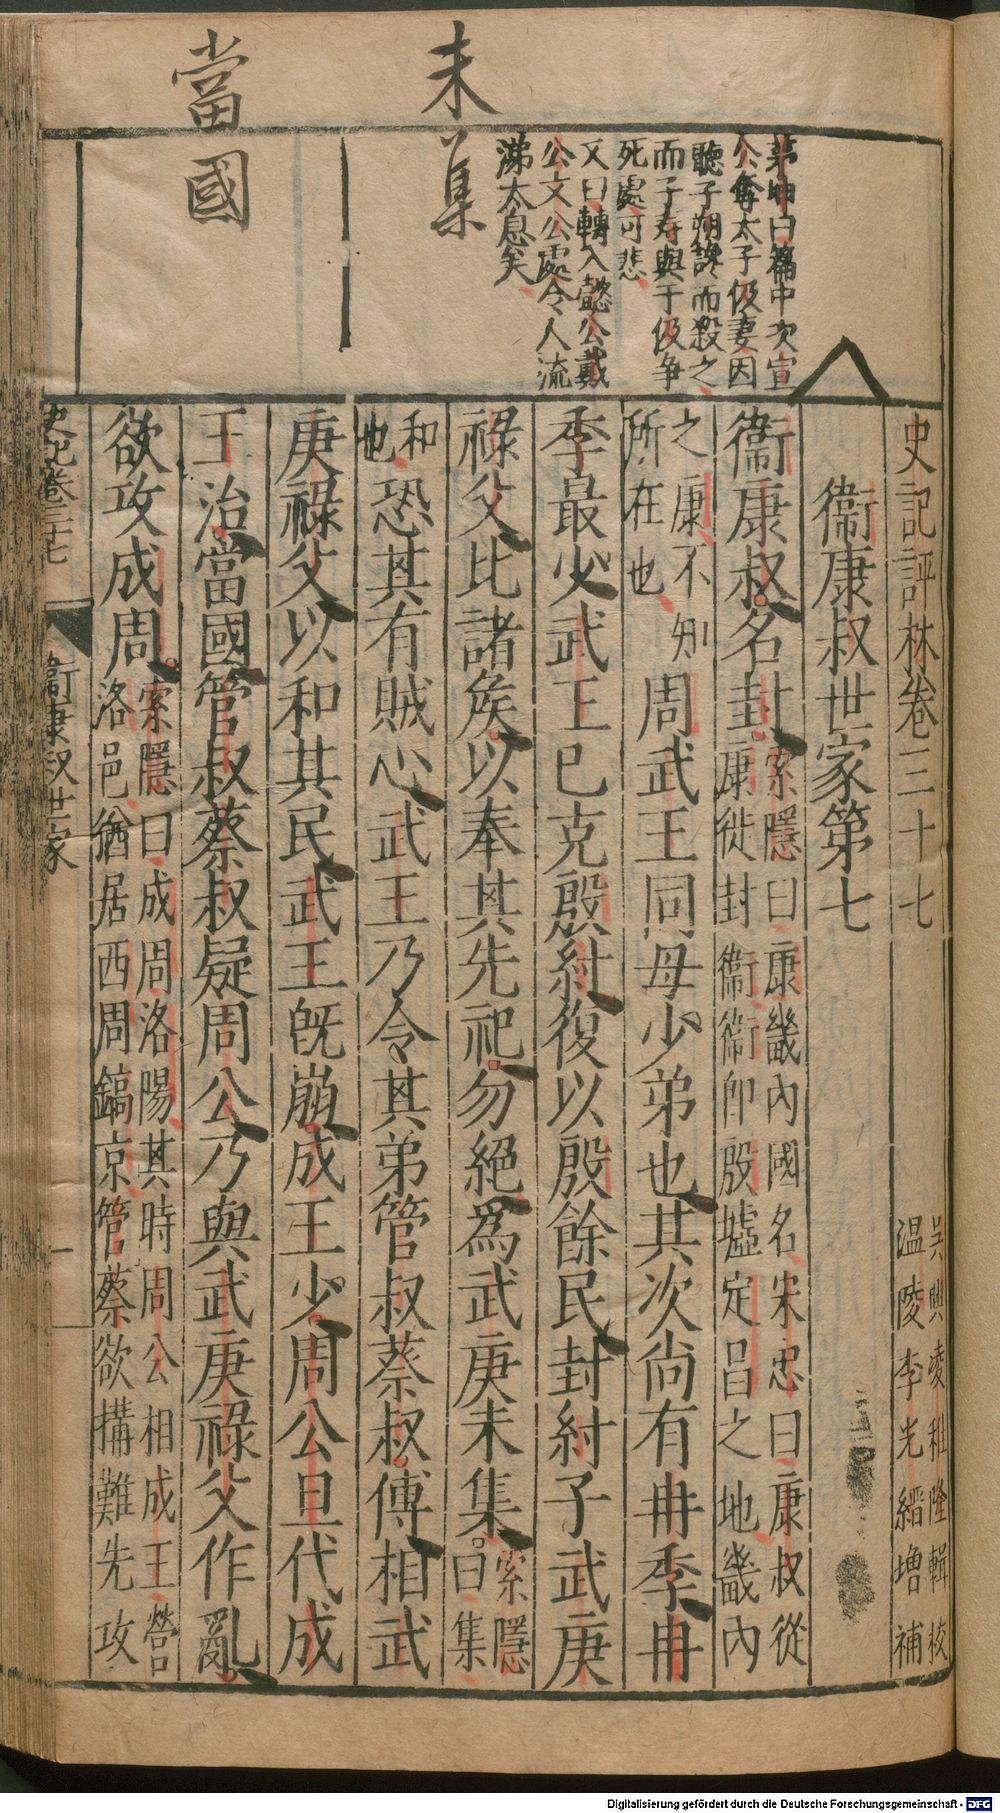 未集
當國
茅坤曰篇中次宣
公奪太子伋妻因
聽子朔讒而殺之
而子壽與子伋争
死處可悲
又曰轉入懿公戴
公文公處令人流
涕太息矣
史記評林卷三十七
吳興凌稚隆輯校
温陵李光縉增補
衞康叔世家第七
衞康叔名封
索隱曰康畿內國名宋忠曰康叔從
康徙封衞衞卽殷墟定昌之地畿內
之康不知
所在也
周武王同母少弟也其次尚有冉季冉
季最少武王已克殷紂復以殷餘民封紂子武庚
祿父比諸矦以奉其先祀勿絕爲武庚未集
索隱
曰集
和
也
恐其有賊心武王乃令其弟管叔蔡叔傅相武
庚祿父以和其民武王旣崩成王少周公旦代成
王治當國管叔蔡叔疑周公乃與武庚祿父作亂
欲攻成周
索隱曰成周洛陽其時周公相成王營
洛邑猶居西周鎬京管蔡欲搆難先攻
史記卷三十七
衞康叔世家
一
Digitalisierung gefördert durch die Deutsche Forschungsgemeinschaft - DFG